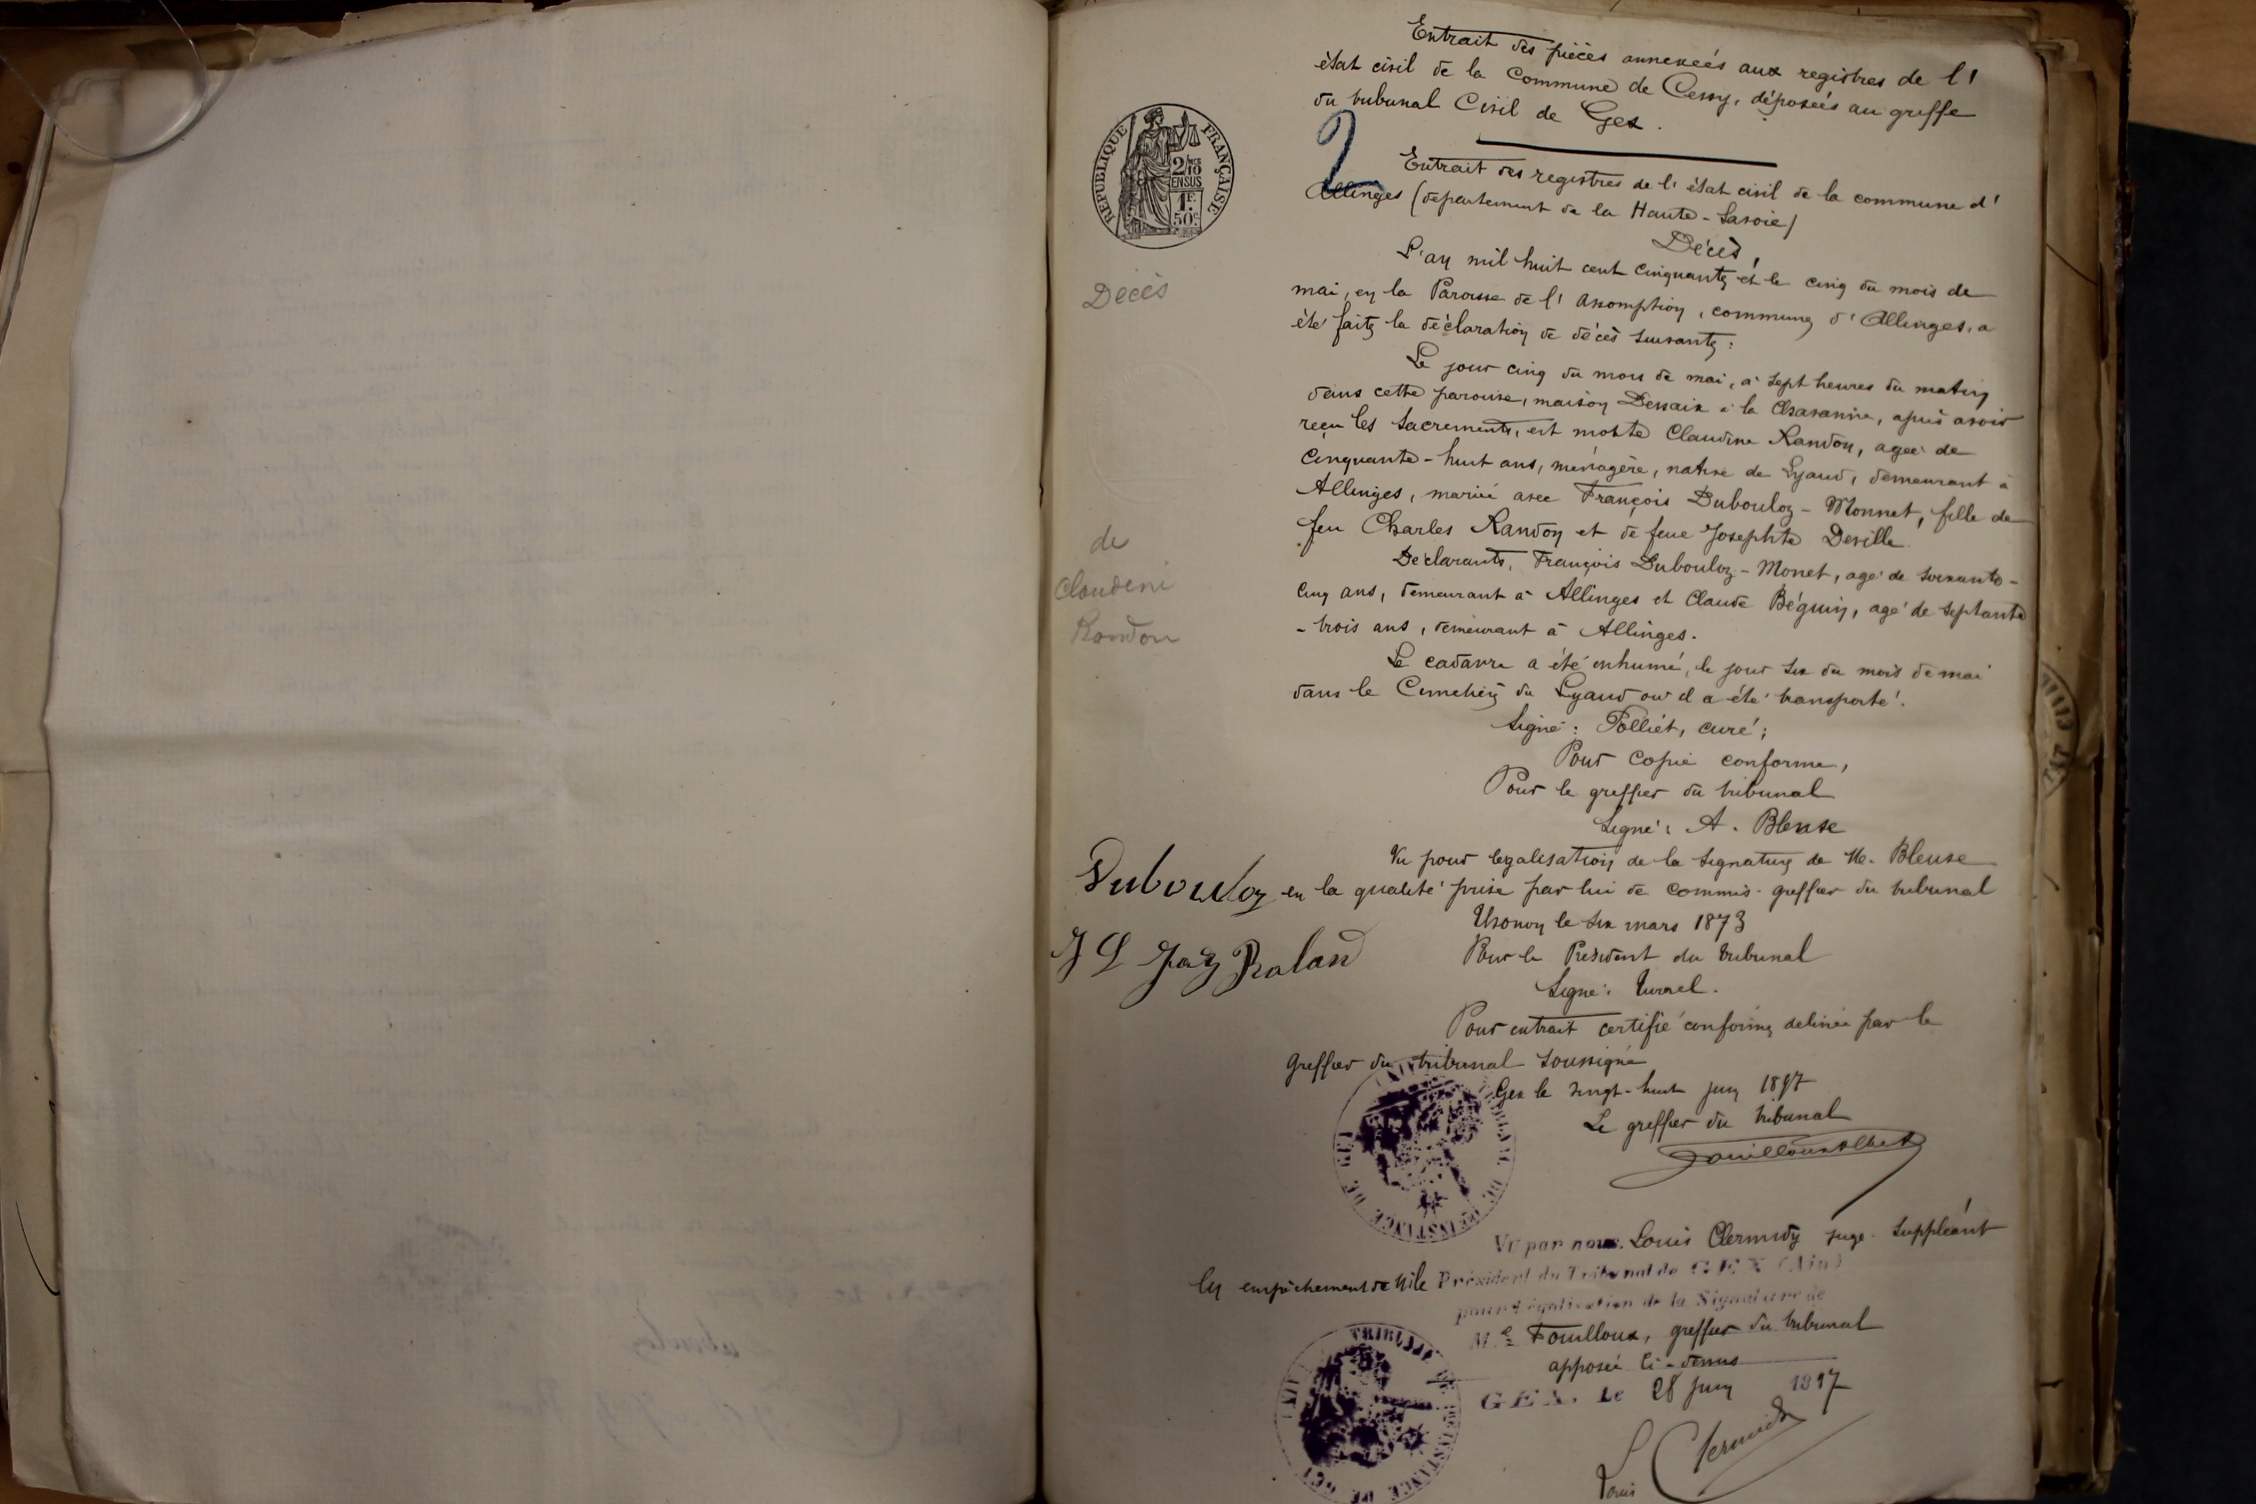 Extrait des pièces annexées aux registres de l'
état civil de la Commune de Cessy, déposées au greffe
du tribunal Civil de Gex.
2
Extrait des registres de l'état civil de la commune d'
Allinges (département de la Haute-Savoie)
RÉPUBLIQUE FRANÇAISE
2/10
EN SUS
1F.
50c.
Décès,
Décès
L'an mil huit cent cinquante et le cinq du mois de
mai, en la Paroisse de l'Assomption, commune d'Allinges, a
été faite la déclaration de décès suivante:
Le jour cinq du mois de mai, à sept heures du matin
dans cette paroisse, maison Dessaix à la Chavanne, après avoir
reçu les Sacrements, est morte Claudine Randon, agée de
Cinquante-huit ans, ménagère, native de Lyaud, demeurant à
Allinges, mariée avec François Dubouloz-Monnet, fille de
feu Charles Randon et de feue Josephte Deville.
de
Claudine
Randon
Déclarants, François Dubouloz-Monet, agé de soixante-
cinq ans, demeurant à Allinges et Claude Béguin, agé de septante
-trois ans, demeurant à Allinges.
Le cadavre a été inhumé, le jour six du mois de mai
dans le Cimetière du Lyaud où il a été transporté.
Signé: Folliet, curé;
Pour Copie conforme,
Pour le greffier du tribunal
Signé: A. Bleuse
Vu pour légalisation de la signature de M. Bleuse
en la qualité prise par lui de commis-greffier du tribunal
Dubouloz
Thonon le six mars 1873
Pour le Président du tribunal
Signé: Turrel.
J L Roland
Pour extrait certifié conforme délivré par le
greffier du tribunal soussigné
Gex le vingt-huit juin 1897
Le greffier du tribunal
Fouilloux Albert
TRIBUNAL DE 1RE INSTANCE DE GEX
Vu par nous Louis Clermidy juge suppléant
en empêchement de Mr le Président du Tribunal de GEX (Ain)
pour légalisation de la Signature de
Me Fouilloux, greffier du tribunal
apposée ci-dessus
GEX, le 28 juin 1897
TRIBUNAL DE 1RE INSTANCE DE GEX
Louis Clermidy